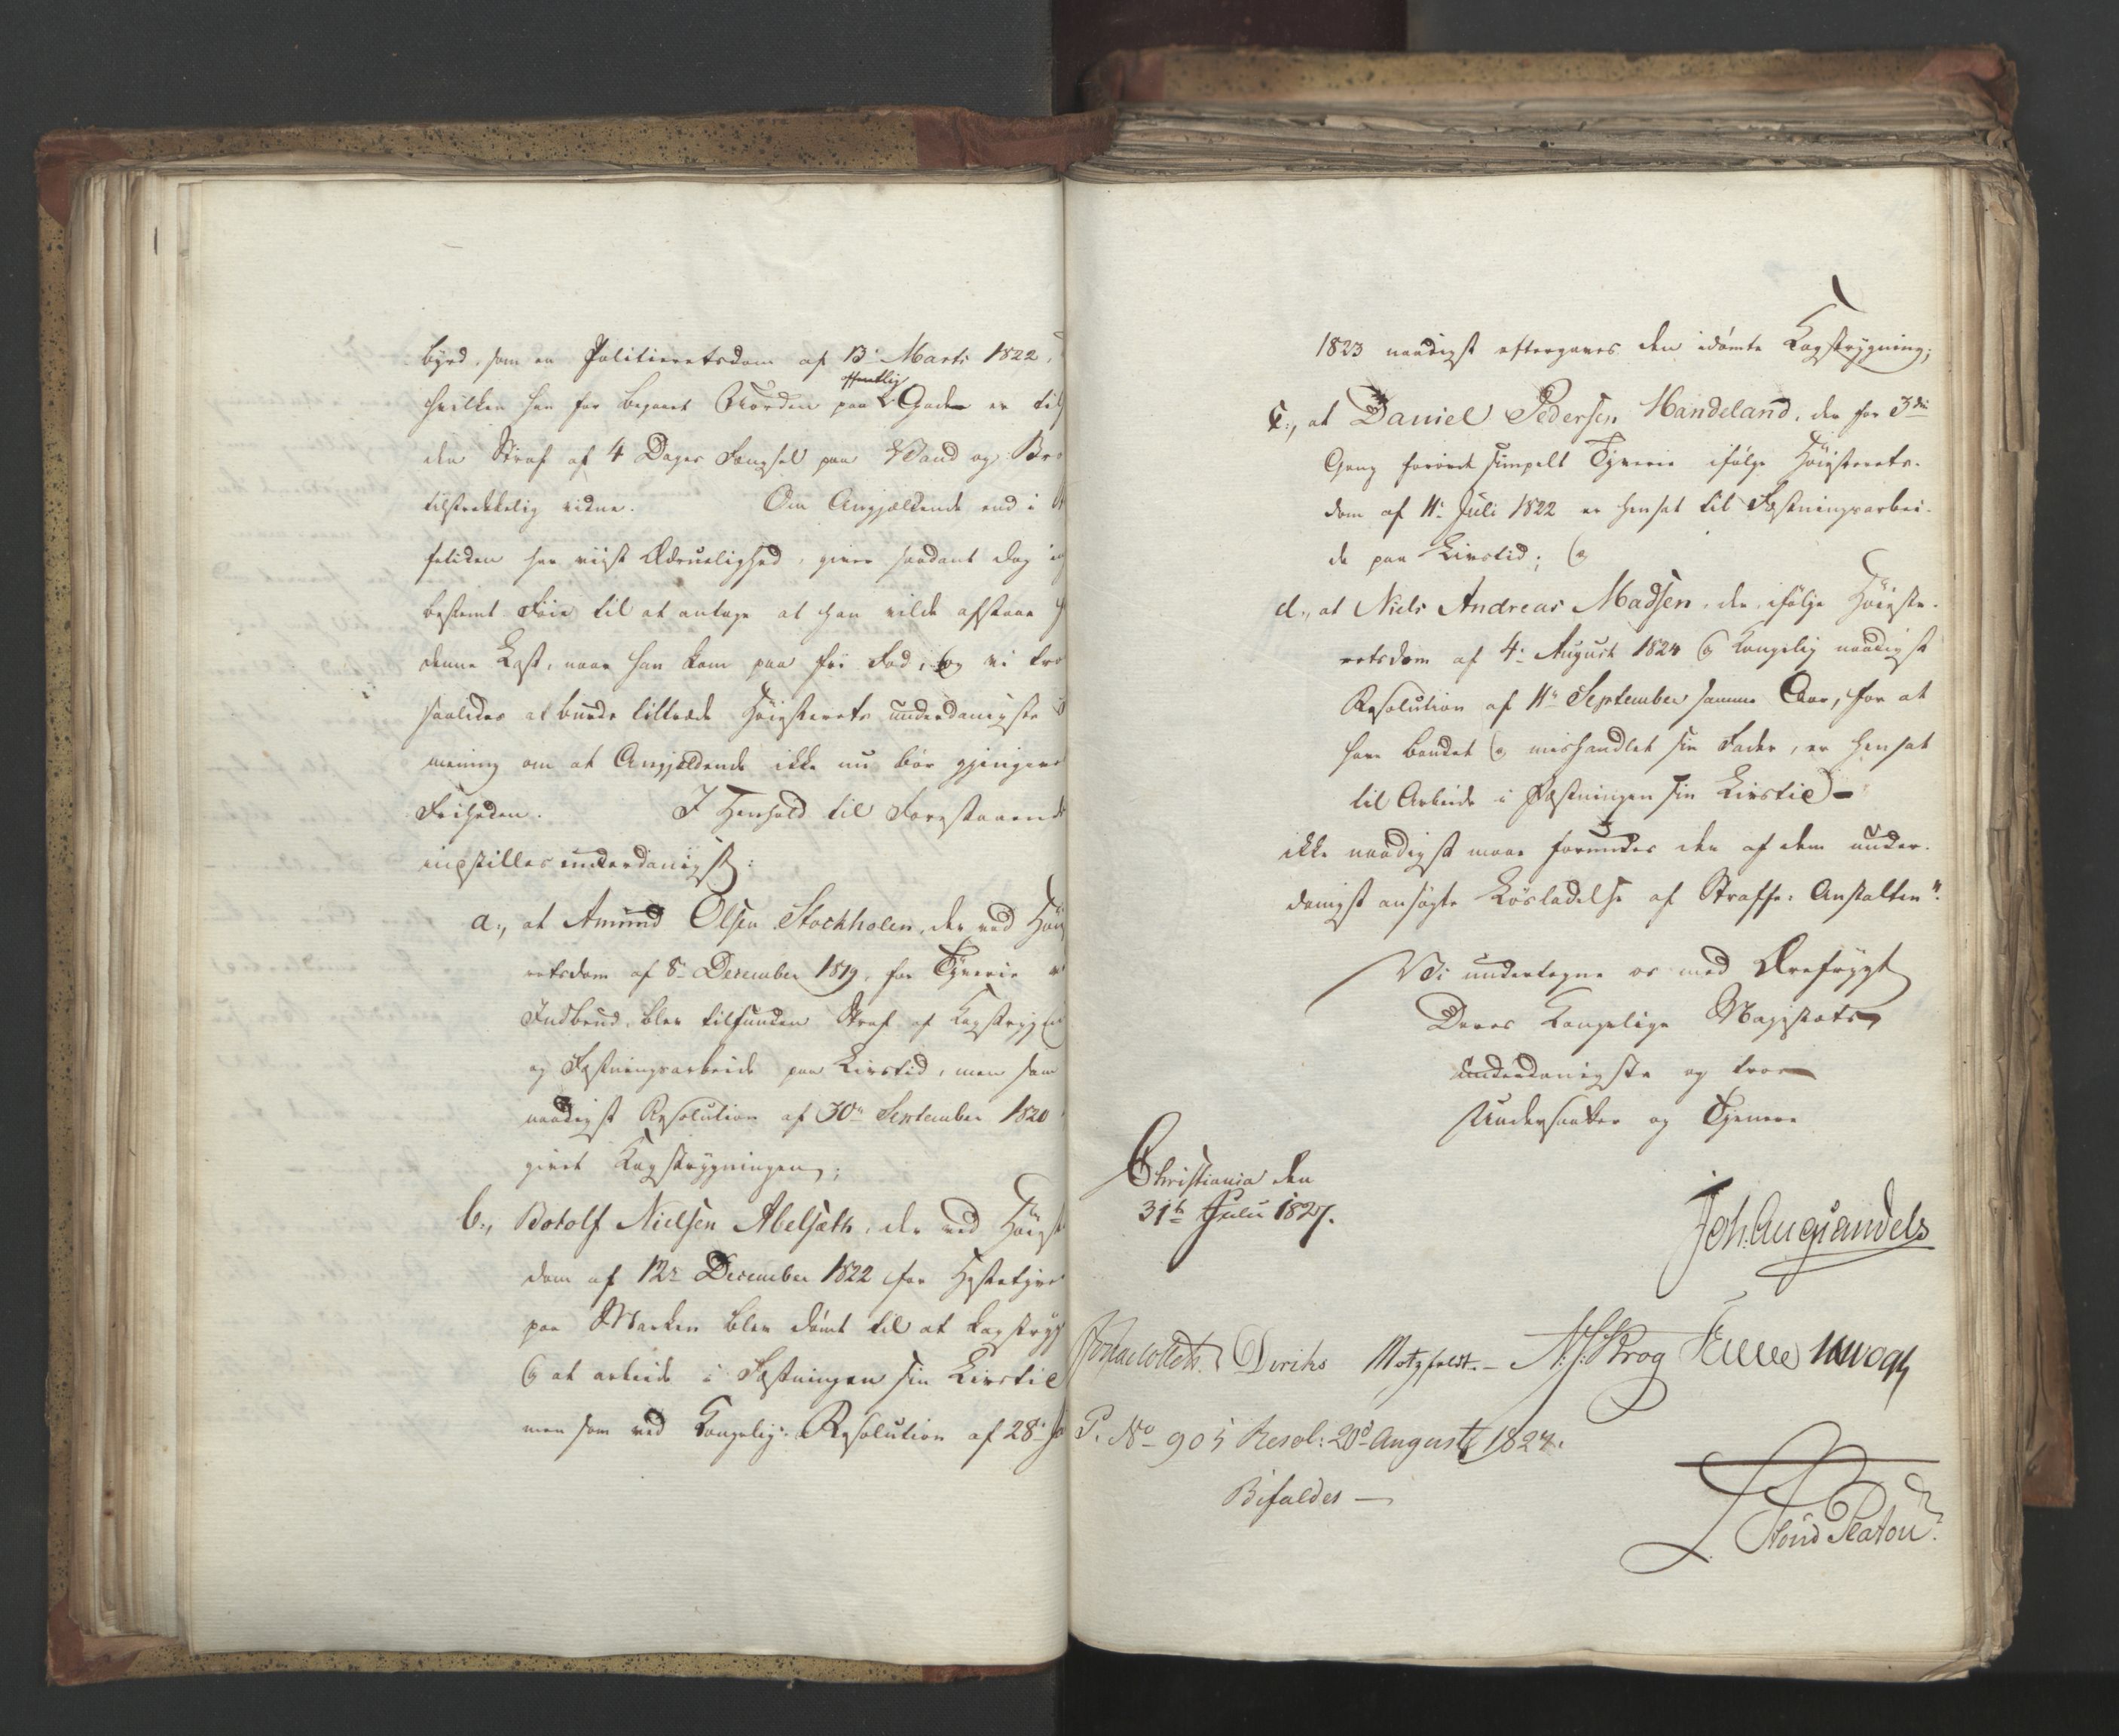 byrd, som en Politieretsdom af 13de Marts 1822,
hvilken han for begaaet Uorden paa offentlig Gade er til
den Straf af 4 Dages Fængsel paa Vand og Brø
tilstrekkelig vidne. Om Angjældende end i
seliden har viist Ædruelighed, giver saadant dog in
bestemt Føie til at antage at han vilde afstaae
denne Lyst, naar han kom paa fri Fod, og vi tro
saaledes at burde tiltræde Høiesterets underdanigste
mening om at Angjældende ikke nu bør gjengives
Friheden. I Henhold til Forestaaende
indstilles underdanigst:
a., at Amund Olsen Stockholen, der ved Høi
retsdom af 8de December 1819, for Tyverie
Indbrud, blev tilfunden Straf af Kagstrygn
og Fæstningsarbeide paa Livstid, men som
naadigst Resolution af 30te September 1820
givet Kagstrygningen;
b., Botolf Nielsen Abelsæth, der ved Høiest
dom af 12te December 1822 for Hestetyve
paa Marken blev dømt til at kagstryg
og at arbeide i Fæstningen sin Livstid
men som ved Kongelig Resolution af 28de
1823 naadigst eftergaves den idømte Kagstrygning;
c., at Daniel Pedersen Handeland, der for 3die
Gang forøvet simpelt Tyverie ifølge Høiesterets-
dom af 11te Juli 1822 er hensat til Fæstningsarbei-
de paa Livstid; og
d., at Niels Andreas Madsen, der, ifølge Høieste-
retsdom af 4de August 1824 og Kongelig naadigst
Resolution af 11te September samme Aar, for at
have bandet og mishandlet sin Fader, er hensat
til Arbeide i Fæstningen sin Livstid -
ikke naadigst maae forundes den af dem under-
danigst ansøgte Løsladelse af Straffe-Anstalten".
Vi undertegne os med Ærefrygt
Deres Kongelige Majestæts
underdanigste og troe
Undersaatter og Tjenere
Christiania den
31te Julii 1827.
Joh. Aug. Sandels
Jonas Collett. Diriks Motzfeldt. N. J. Krog Fasting
P. No 905 Resol: 20de August 1827.
Bifaldes -